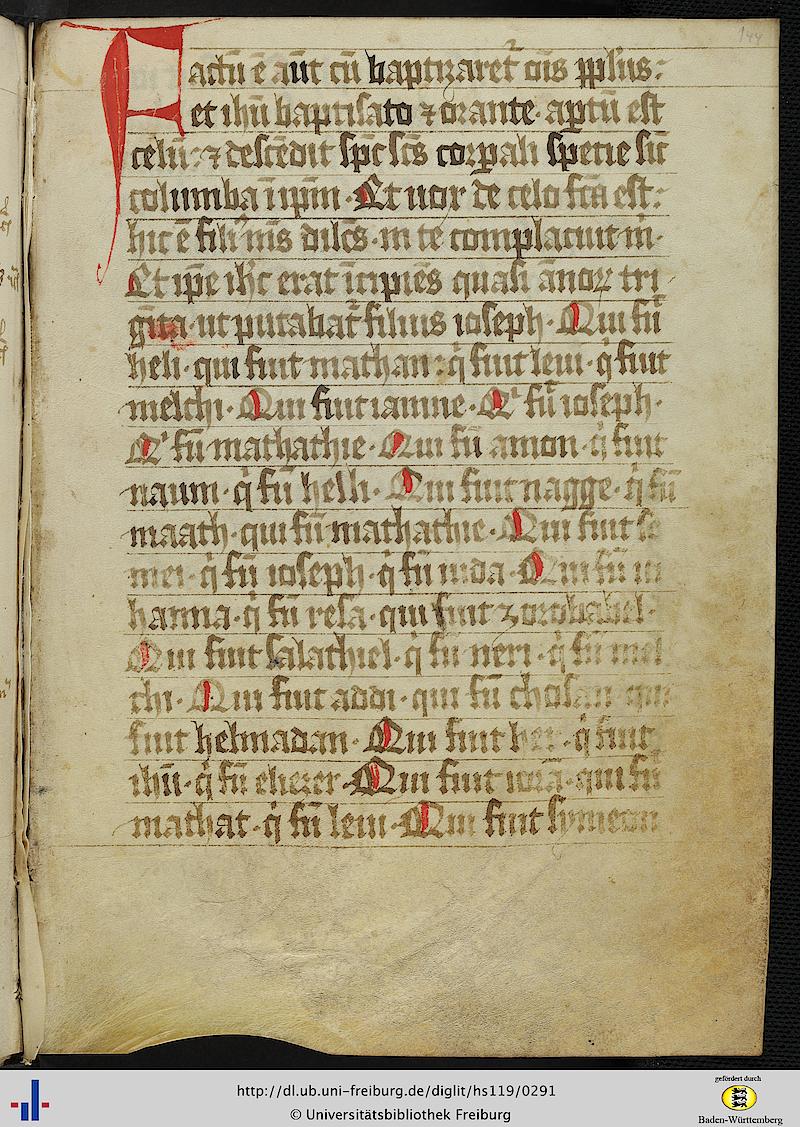 144
Factū ē aūt cū baptizaret᷑ oīs ppl̄us:
et ihū baptisato ⁊ orante· aptū est
celū: ⁊ descēdit sp̄c sc̄s corꝑali specie sic̄
columba ī ip̄m · Et uox de celo fc̄a est:
hic ē filiꝰ m̄s dilc̄s · in te complacuit m̄·
Et ip̄e ih̄c erat īcipiēs quasi ānoꝝ tri
gīta · ut putabat᷑ filius ioseph · Qui fū
heli · qui fuit mathan: q̄ fuit leui · q̄ fuit
melchi · Qui fuit iamne · Qͥ fū ioseph ·
Qͥ fū mathathie · Qui fū amon · q̄ fuit
naum · q̄ fū heſli · Qui fuit nagge · q̄ fū
maath · qui fū mathathie · Qui fuit se
mei · q̄ fū ioseph · q̄ fū iuda · Qui fū io
hanna · q̄ fū resa · qui fuit zorobabel ·
Qui fuit salathiel · q̄ fū neri · q̄ fū mel
chi · Qui fuit addi · qui fū chosan qui
fuit helmadan · Qui fuit her · q̄ fuit
ihū · q̄ fū eliezer · Qui fuit iorā · qui fū
mathat · q̄ fū leui · Qui fuit symeon
http://dl.ub.uni-freiburg.de/diglit/hs119/0291
© Universitätsbibliothek Freiburg
gefördert durch
Baden-Württemberg